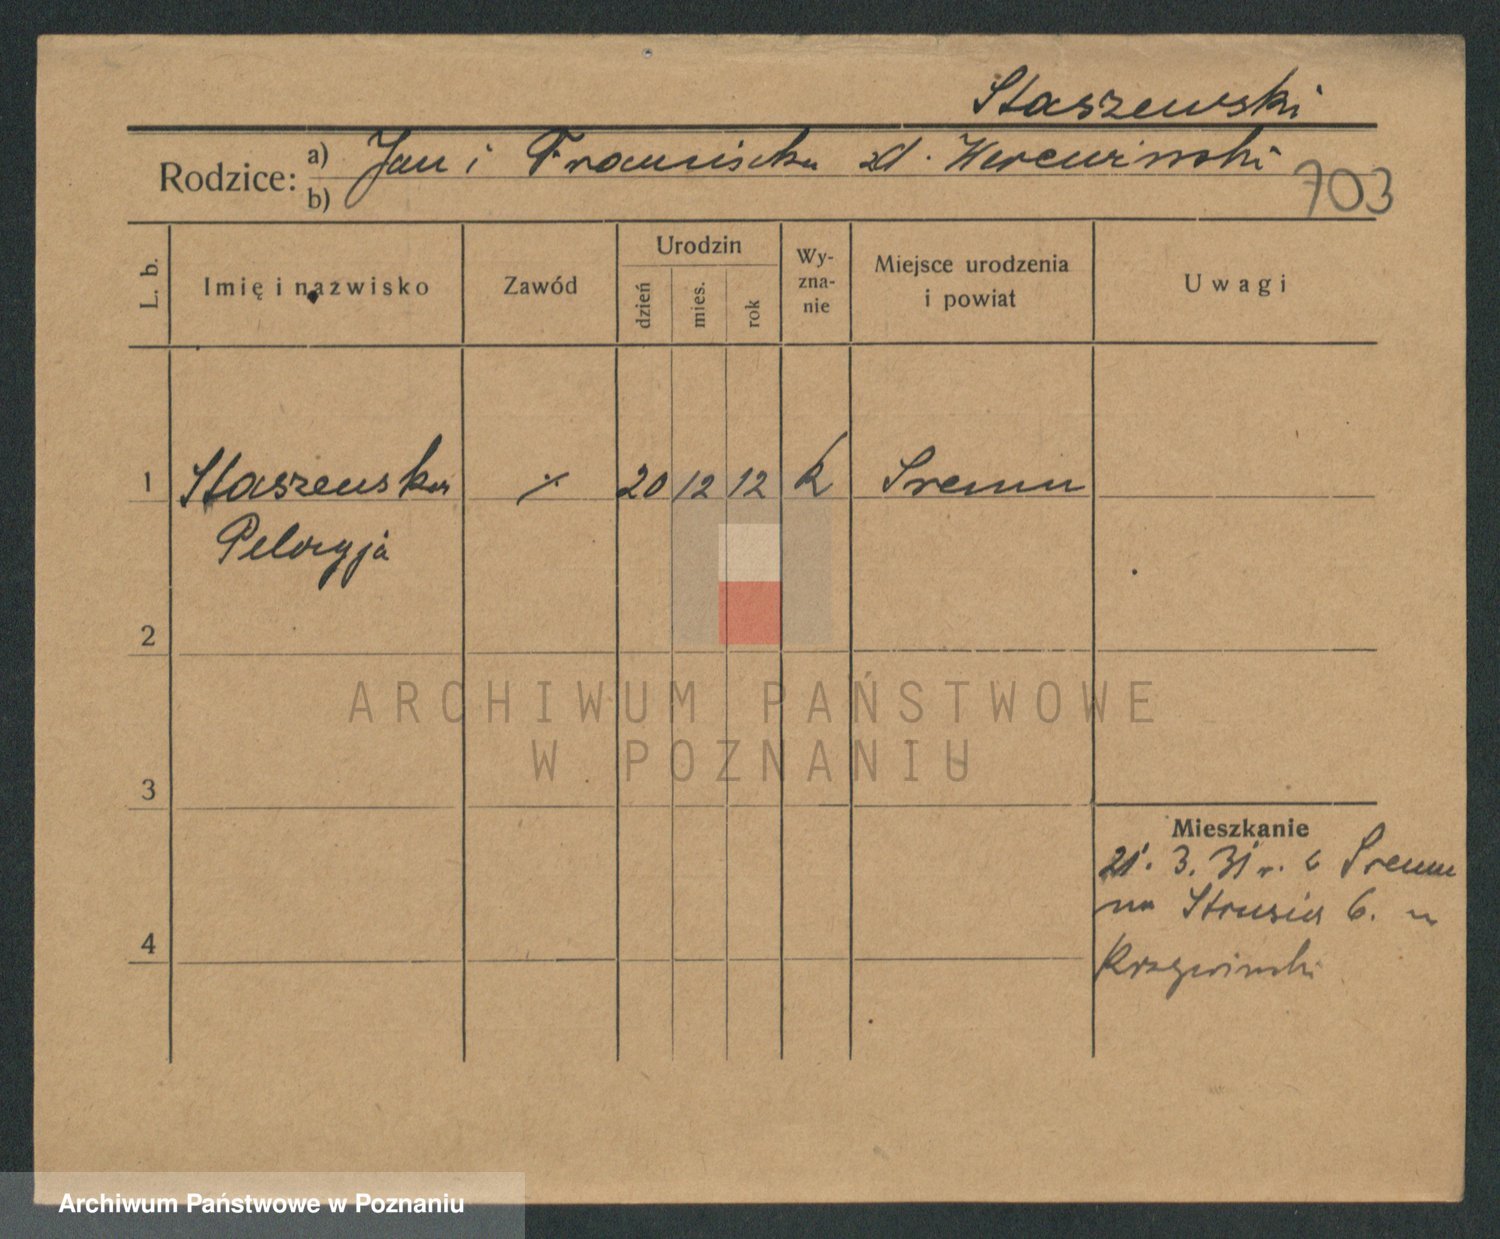 Staszewski
Rodzice: a) Jan i Franciszka zd.
b)
703
L. b.
Imię i nazwisko
Zawód
Urodzin
dzień
mies.
rok
Wy-
zna-
nie
Miejsce urodzenia
i powiat
Uwagi
1 Staszewska 20 12 12 k Srem
Pelagja
2
3
4
Mieszkanie
21. 3. 31 r. Srem
na 6.
ARCHIWUM PAŃSTWOWE
W POZNANIU
Archiwum Państwowe w Poznaniu